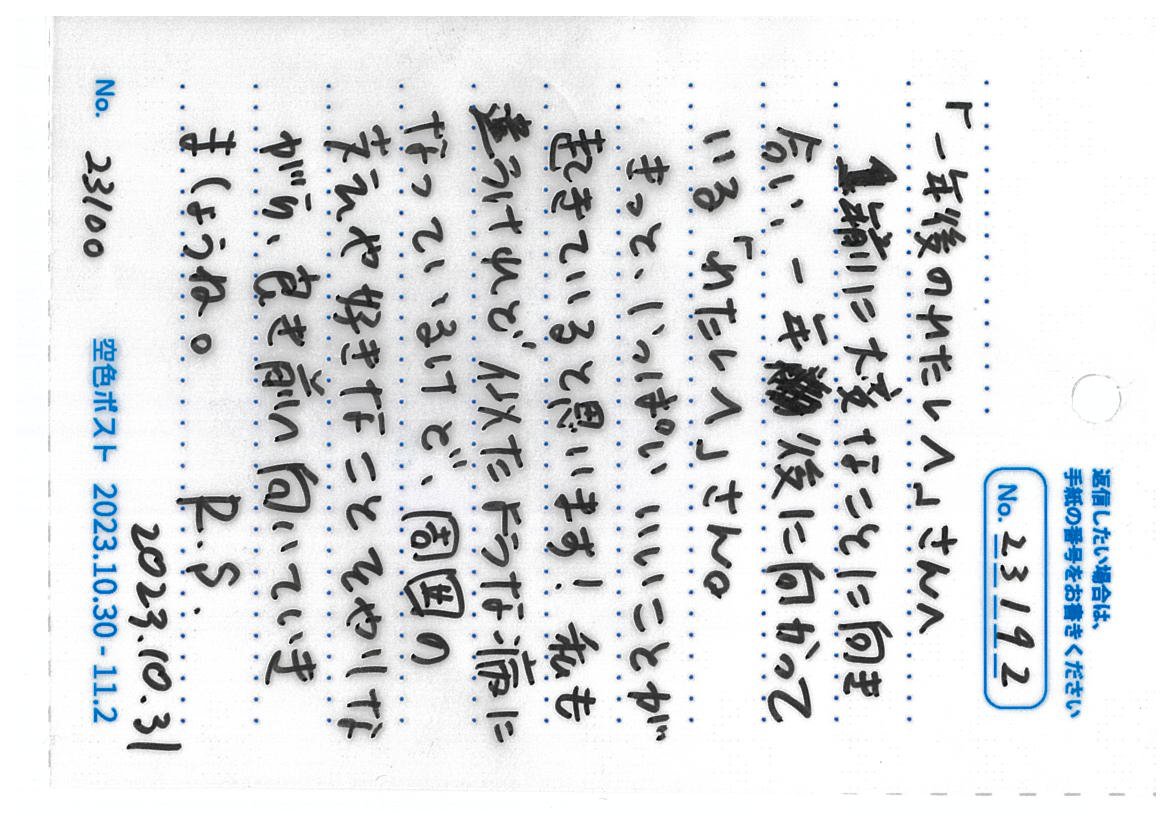 返信したい場合は、
手紙の番号をお書きください
No. 23192
「一年後のわたしへ」さんへ
1年前に大変なことに向き
合い、一年後に向かって
いる「わたしへ」さん。
きっと、いっぱい いいことが
起きていると思います! 私も
違うけれど 似たような病に
なっているけど、周囲の
支えや好きなことをやりな
がら、良き前へ向いていき
ましょうね。 R.S.
2023.10.31
No. 23100 空色ポスト 2023.10.30 - 11.2